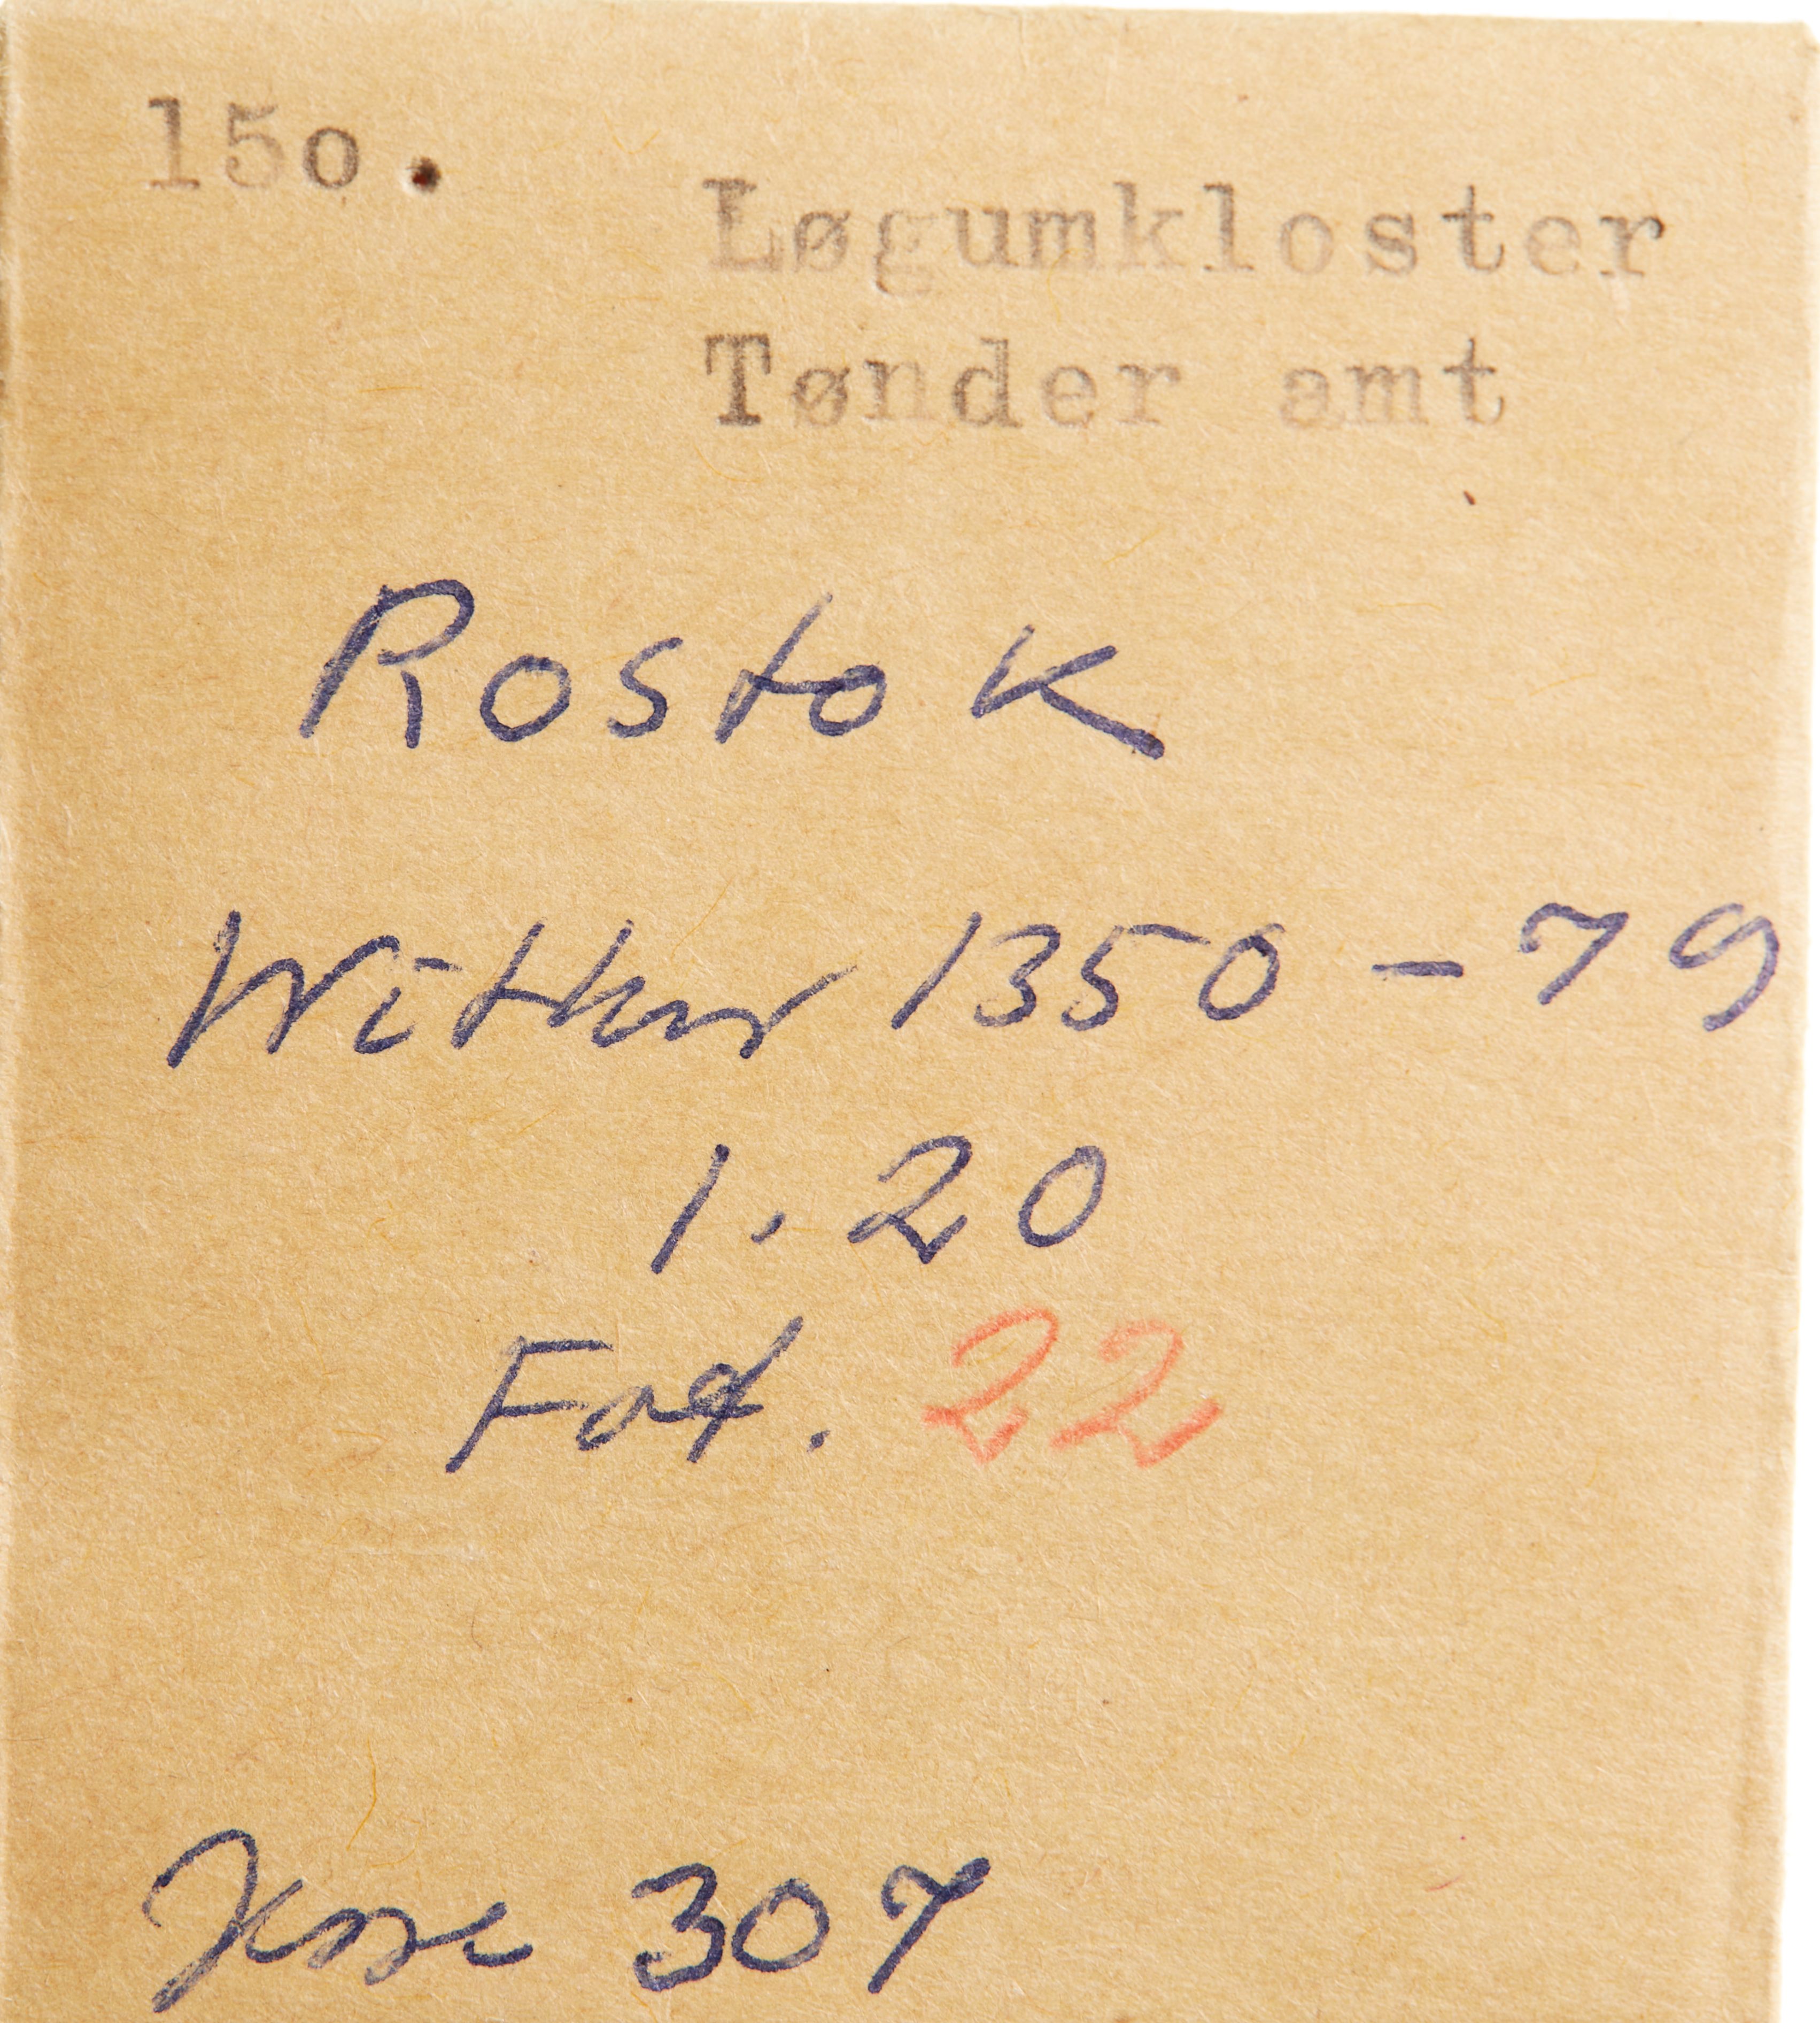 15o.
Løgumkloster
Tønder amt
Rostok
Witten 1350-79
1.20
Fot. 22
Jesse 307